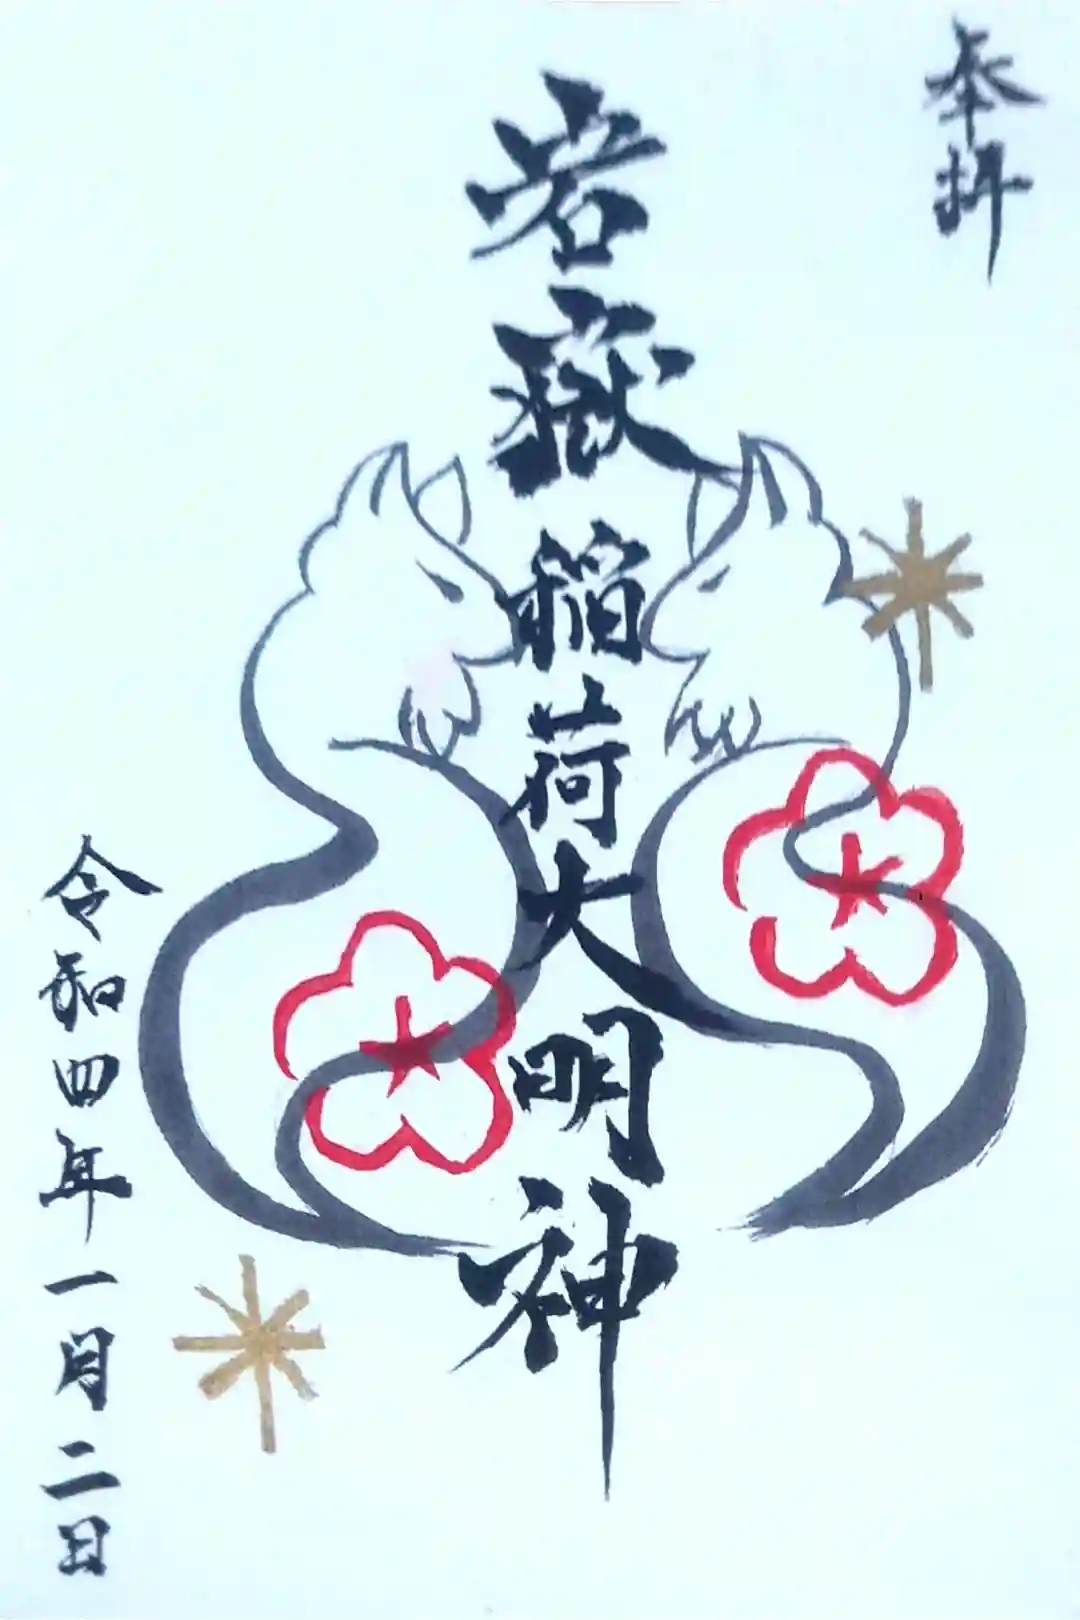 奉拝
岩嶽稲荷大明神
令和四年一月二日